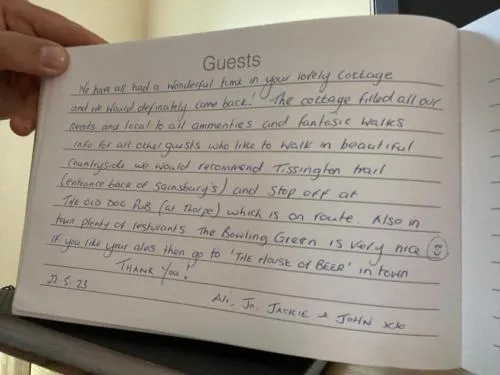 Guests
We have all had a wonderful time in your lovely cottage
and we would definately come back! The cottage filled all our
needs and local to all ammenties and fantasic walks
info for all other guests who like to walk in beautiful
countryside we would recommend Tissington trail
(entrance back of Sainsbury's) and stop off at
THE OLD DOG PUB (at Thorpe) which is on route. Also in
town plenty of resturants The Bowling Green is very nice
if you like your ales then go to 'THE HOUSE OF BEER' in town
THANK YOU!
.5.23
Ali, Jo, JACKIE & JOHN xxo